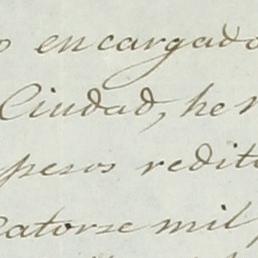 o encargado
Ciudad, he r
pesos redit
catorse mil